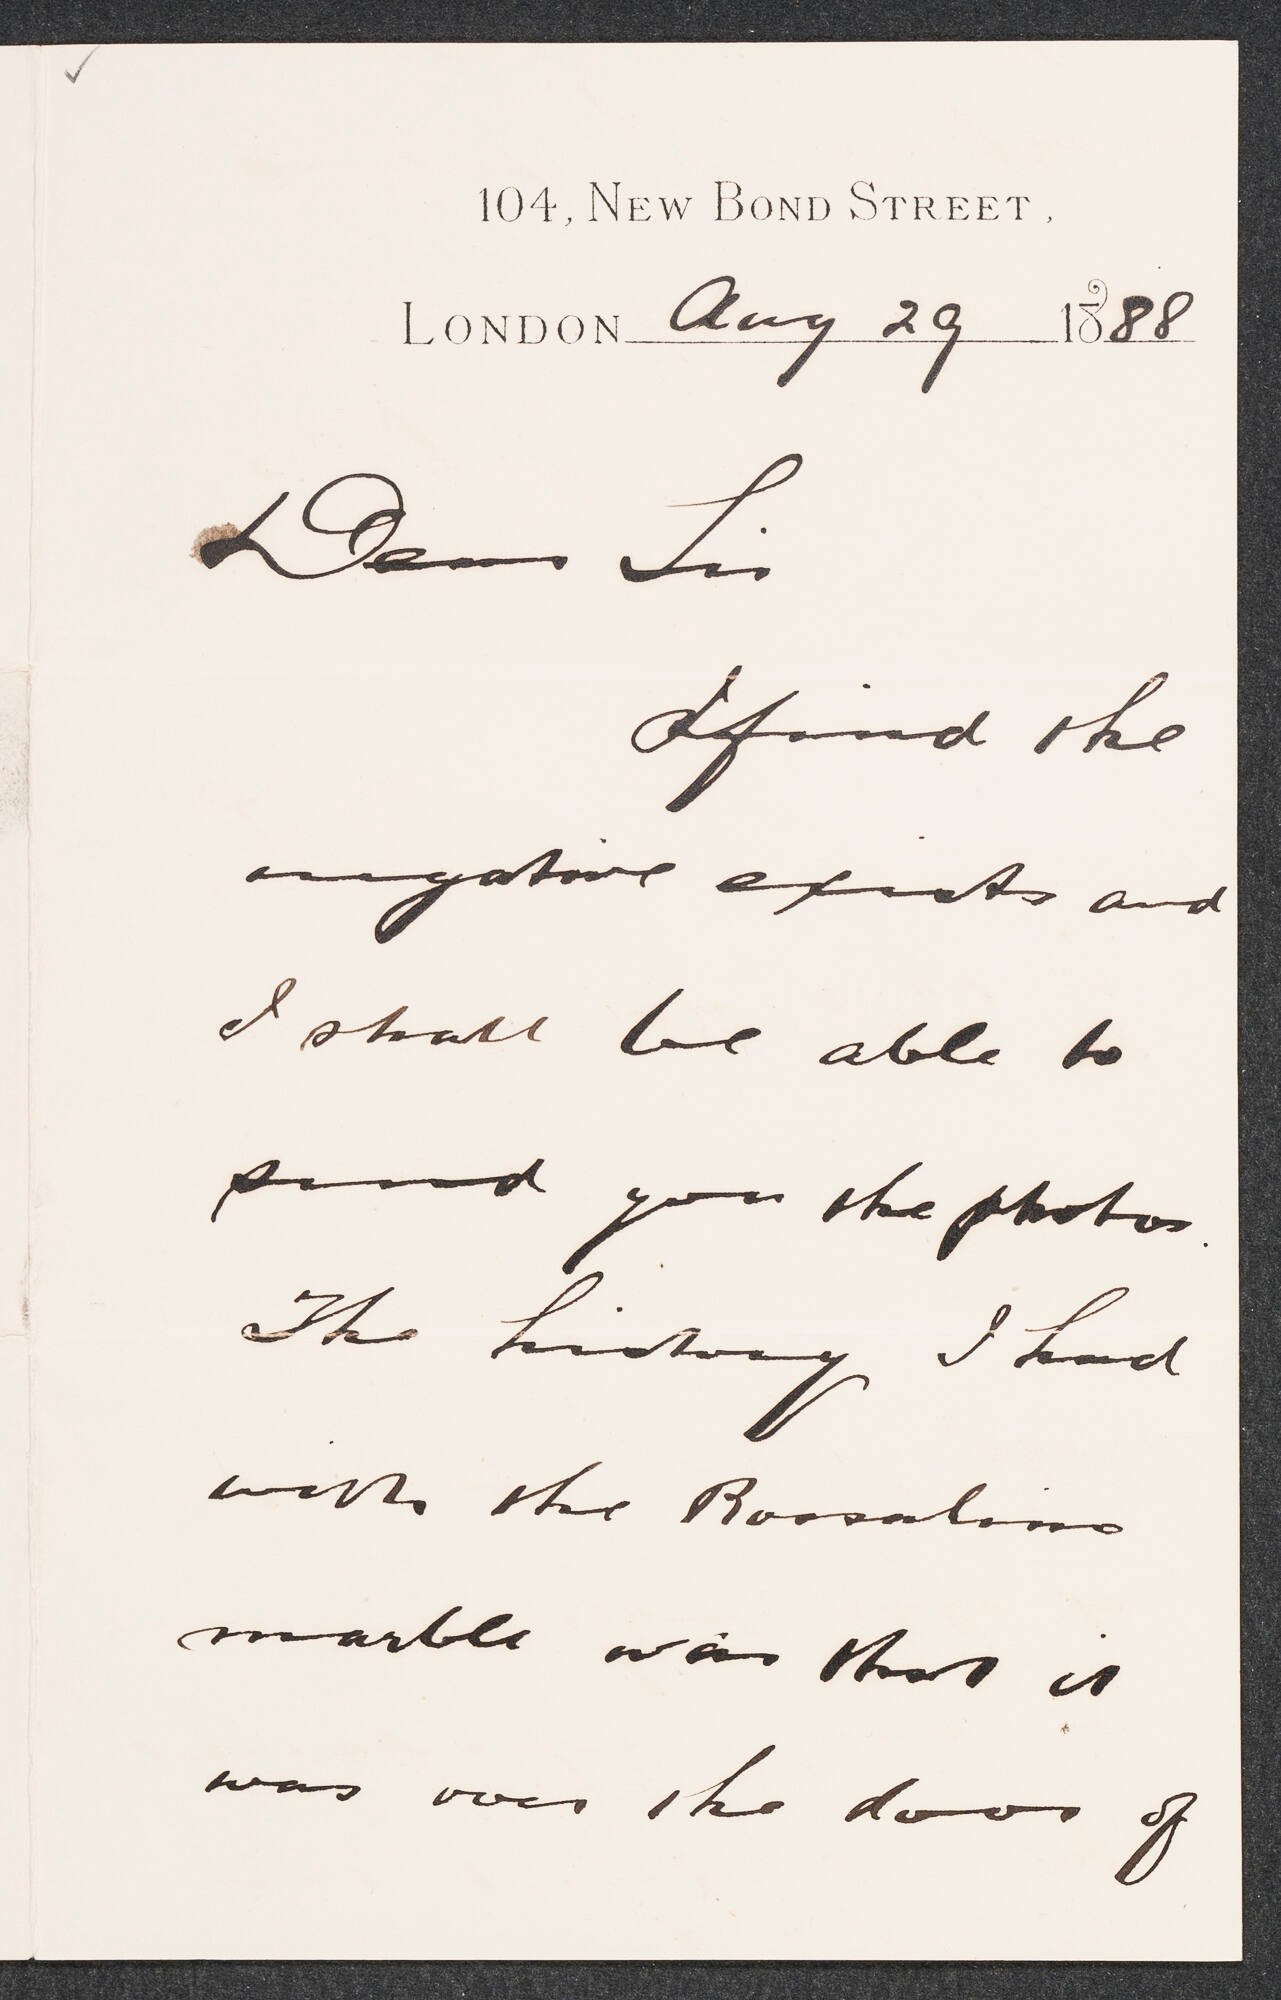 104, New Bond Street,
London Aug 29 1888
Dear Sir
I find the
negative exists and
I shall be able to
send you the photos.
The history I had
with the Rossalino
marble was that it
was over the door of